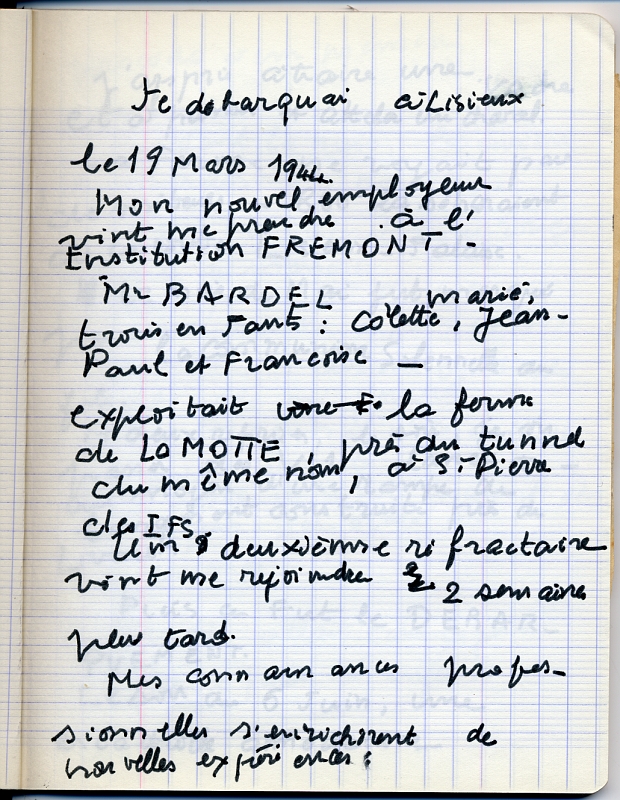 Je debarquai à Lisieux
le 19 Mars 1944.
Mon nouvel employeur
vint me prendre à l'
Institution FREMONT -
Mr BARDEL marié,
trois enfants : Colette, Jean-
Paul et Francoise —
exploitait la ferme
de La MOTTE, près du tunnel
du même nom, à St Pierre
des IFS,
Un deuxième réfractaire
vint me rejoindre 2 semaines
plus tard.
Mes connaissances profes-
sionnelles s'enrichirent de
nouvelles expériences :